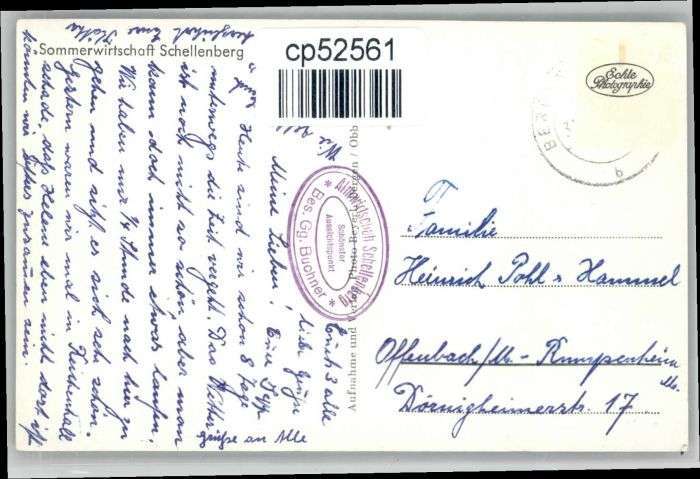 Sommerwirtschaft Schellenberg
cp52561
Echte
Photographie
Meine Lieben!
Heute sind wir schon 8 Tage
unterwegs die Zeit vergeht. Das Wetter
ist noch nicht so schön, aber man
kann doch immer etwas laufen.
Wir haben nur 3/4 Stunde nach hier zu
gehen und sitzt es sich sehr schön.
Gestern waren wir mal in Reichenhall
schade, daß Helene eben nicht dort ist
könnten wir zusammen sein.
Euch alle
liebe Grüße
Grüße an Alle
herzlichst Eure Käthe
Almwirtschaft Schellenberg
Schönster
Aussichtspunkt
Bes. Gg. Buchner
Aufnahme und
Familie
Heinrich Pohl & Hammel
Offenbach/M.-Rumpenheim
Dörnigheimerstr. 17